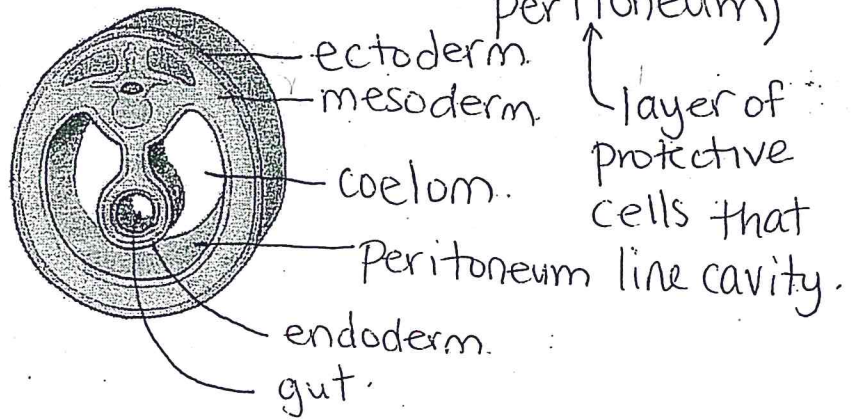 peritoneum)
ectoderm.
mesoderm.
coelom.
Peritoneum
endoderm.
gut.
layer of
protective
cells that
line cavity.